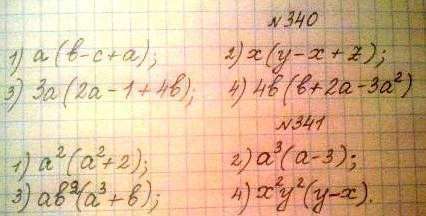 №340
1) a(b-c+a); 2) x(y-x+z);
3) 3a(2a-1+4b); 4) 4b(b+2a-3a²)
№341
1) a²(a²+2); 2) a³(a-3);
3) ab³(a³+b); 4) x²y²(y-x).